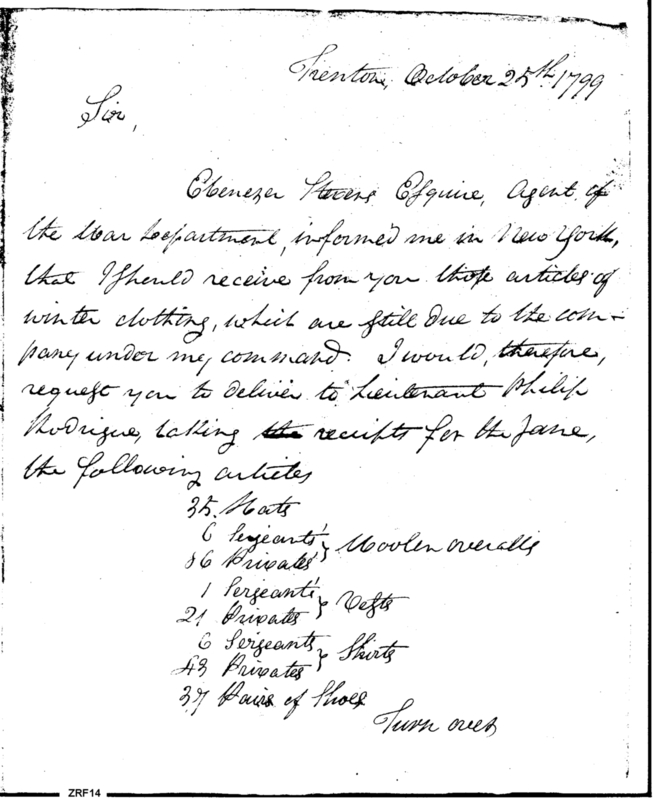 Trenton, October 25th. 1799
Sir,
Ebenezer Stevens Esquire, Agent of
the War Department, informed me in New York,
that I should receive from you those articles of
winter clothing, which are still due to the com-
pany under my command. I would, therefore,
request you to deliver to Lieutenant Philip
Rodrigue, taking the receipts for the same,
the following articles
35. Hats
6 Sergeants' } Woolen overalls
86 Privates'
1 Sergeants' } Vests
21 Privates
6 Sergeants } Shirts
43 Privates
37 Pairs of Shoes
Turn over
ZRF14